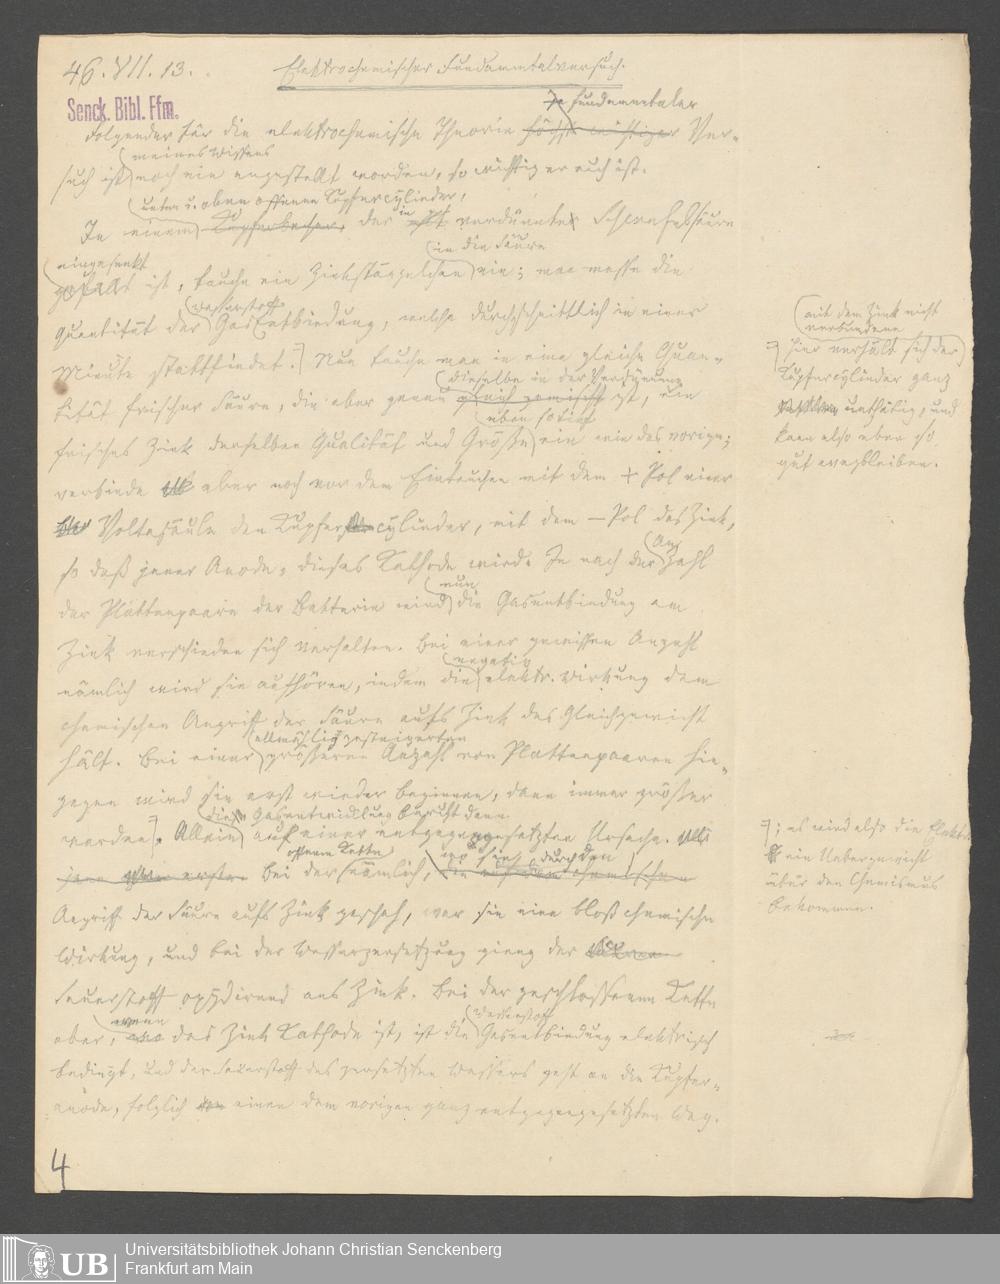 46. VII. 13.
Elektrochemischer Fundamentalversuch.
Senck. Bibl. Ffm.
fundamentaler
Folgender für die elektrochemische Theorie höchst wichtiger Ver-
meines Wissens
such ist noch nie angestellt worden, so wichtig er auch ist.
unten u. oben offenen Kupfercylinder,
In einem Kupferbecher, der in verdünnter Schwefelsäure
eingesenkt
in die Säure
gefüllt ist, tauche ein Zinkstängelchen ein; man messe die
Wasserstoff
Quantität der Gasentbindung, welche durchschnittlich in einer
Minute stattfindet. Nun tauche man in eine gleiche Quan-
dieselbe in der Verdünnung
tität frischer Säure, die aber genau ist, ein
eben so tief
frisches Zink derselben Qualität und Größe ein wie das vorige;
verbinde aber noch vor dem Eintauchen mit dem + Pol einer
Voltasäule den Kupfercylinder, mit dem – Pol das Zink,
so daß jener Anode, dieses Kathode wird. Je nach der Anzahl
nun
der Plattenpaare der Batterie wird die Gasentbindung am
Zink verschieden sich verhalten. Bei einer gewissen Anzahl
negativ
nämlich wird sie aufhören, indem die elektr. Wirkung dem
chemischen Angriff der Säure aufs Zink das Gleichgewicht
allmählig gesteigerten
hält. Bei einer größeren Anzahl von Plattenpaaren hin-
gegen wird sie erst wieder beginnen, dann immer größer
diese Gasentwicklung beruht dann
werden. Allein auf einer entgegengesetzten Ursache.
offenen Kette
wo sie durch den
bei der nämlich,
Angriff der Säure aufs Zink geschah, war sie eine bloß chemische
Wirkung, und bei der Wasserzersetzung gieng der
Sauerstoff oxydirend ans Zink. Bei der geschlossenen Kette
wenn
Wasserstoff
aber, das Zink Kathode ist, ist die Gasentbindung elektrisch
bedingt, und der Sauerstoff des zersetzten Wassers geht an die Kupfer-
anode, folglich einen dem vorigen ganz entgegengesetzten Weg.
mit dem Zink nicht
verbundene
hier verhält sich der
Kupfercylinder ganz
unthätig, und
kann also eben so
gut wegbleiben.
; es wird also die Elektr.
ein Uebergewicht
über den Chemismus
bekommen.
4
UB
Universitätsbibliothek Johann Christian Senckenberg
Frankfurt am Main